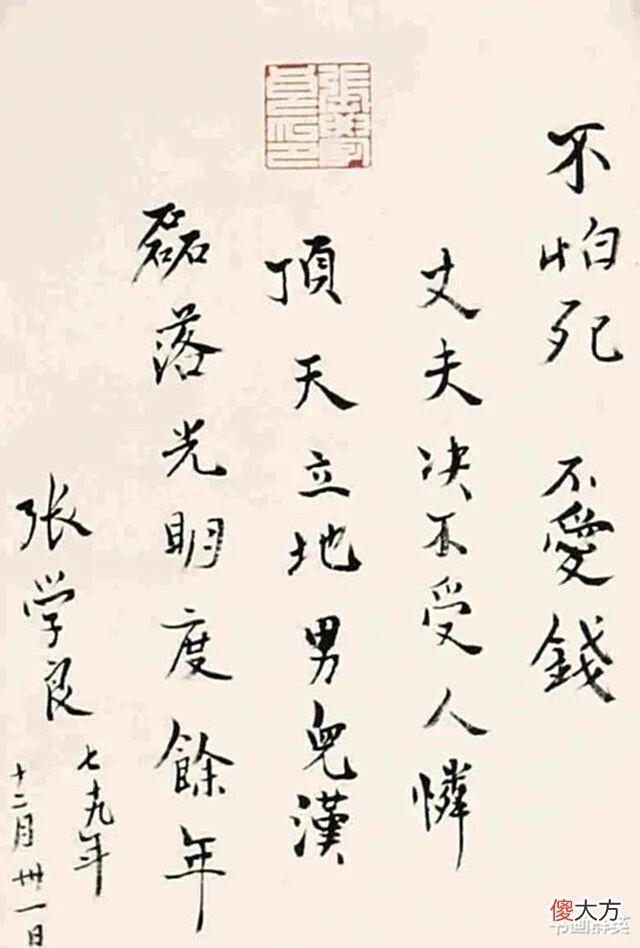 不怕死 不愛錢
丈夫决不受人憐
頂天立地男兒漢
磊落光明度餘年
张学良
七十九年
十二月卅一日
傻大方